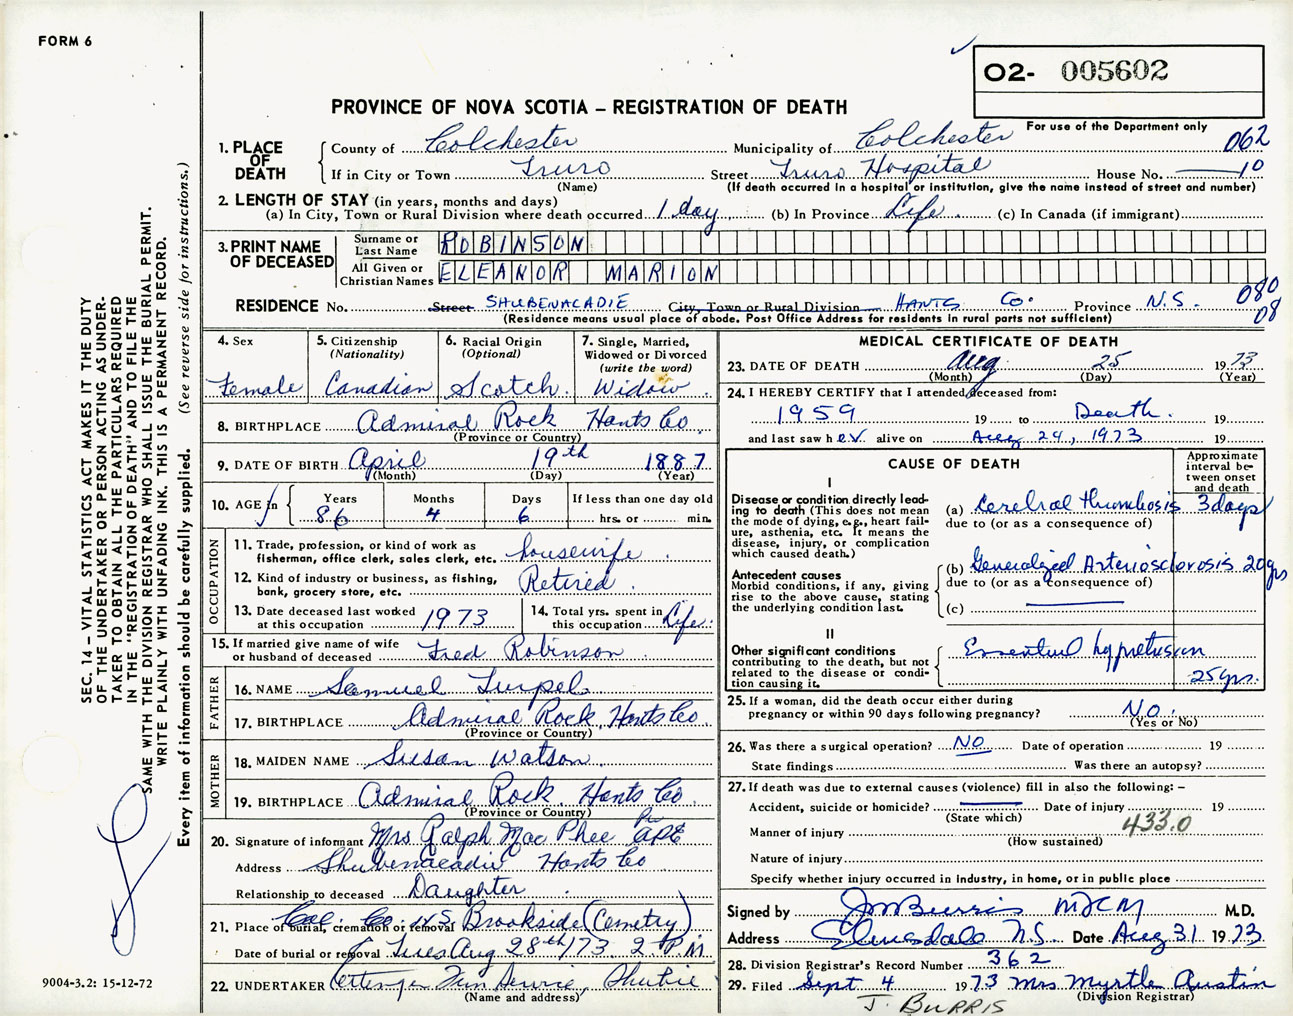 FORM 6
O2- 005602
PROVINCE OF NOVA SCOTIA – REGISTRATION OF DEATH
For use of the Department only
062
1. PLACE OF DEATH
County of Colchester Municipality of Colchester
If in City or Town Truro Street Truro Hospital House No. 10
(Name) (If death occurred in a hospital or institution, give the name instead of street and number)
2. LENGTH OF STAY (in years, months and days)
(a) In City, Town or Rural Division where death occurred 1 day (b) In Province Life (c) In Canada (if immigrant)
3. PRINT NAME OF DECEASED
Surname or Last Name ROBINSON
All Given or Christian Names ELEANOR MARION
RESIDENCE No. Street SHUBENACADIE City, Town or Rural Division HANTS Co. Province N.S. 080
08
(Residence means usual place of abode. Post Office Address for residents in rural parts not sufficient)
4. Sex
Female
5. Citizenship
(Nationality)
Canadian
6. Racial Origin
(Optional)
Scotch
7. Single, Married,
Widowed or Divorced
(write the word)
Widow
8. BIRTHPLACE Admiral Rock Hants Co.
(Province or Country)
9. DATE OF BIRTH April 19th 1887
(Month) (Day) (Year)
10. AGE in Years Months Days If less than one day old
86 4 6 hrs. or min.
OCCUPATION
11. Trade, profession, or kind of work as
fisherman, office clerk, sales clerk, etc. housewife
12. Kind of industry or business, as fishing,
bank, grocery store, etc. Retired
13. Date deceased last worked
at this occupation 1973
14. Total yrs. spent in
this occupation Life
15. If married give name of wife
or husband of deceased Fred Robinson
FATHER
16. NAME Samuel Turpel
17. BIRTHPLACE Admiral Rock Hants Co
(Province or Country)
MOTHER
18. MAIDEN NAME Susan Watson
19. BIRTHPLACE Admiral Rock. Hants Co
(Province or Country)
20. Signature of informant Mrs Ralph MacPhee Per APE
Address Shubenacadie Hants Co
Relationship to deceased Daughter
21. Place of burial, cremation or removal Col. Co. N.S. Brookside (Cemetry)
Date of burial or removal Tues Aug 28th/73 2 P.M.
22. UNDERTAKER
(Name and address)
MEDICAL CERTIFICATE OF DEATH
23. DATE OF DEATH Aug 25 1973
(Month) (Day) (Year)
24. I HEREBY CERTIFY that I attended deceased from:
1959 19 to Death. 19
and last saw her alive on Aug 24, 1973 19
CAUSE OF DEATH
Approximate
interval be-
tween onset
and death
I
Disease or condition directly lead-
ing to death (This does not mean
the mode of dying, e.g., heart fail-
ure, asthenia, etc. It means the
disease, injury, or complication
which caused death.)
(a) Cerebral thrombosis 3 days
due to (or as a consequence of)
Antecedent causes
Morbid conditions, if any, giving
rise to the above cause, stating
the underlying condition last.
(b) Generalized Arteriosclerosis 20 yrs
due to (or as a consequence of)
(c)
II
Other significant conditions
contributing to the death, but not
related to the disease or condi-
tion causing it.
Essential hypertension
25 yrs.
25. If a woman, did the death occur either during
pregnancy or within 90 days following pregnancy? No.
(Yes or No)
26. Was there a surgical operation? NO Date of operation 19
State findings Was there an autopsy?
27. If death was due to external causes (violence) fill in also the following: –
Accident, suicide or homicide? Date of injury 19
(State which)
Manner of injury 433.0
(How sustained)
Nature of injury
Specify whether injury occurred in industry, in home, or in public place
Signed by J M Burris MDCM M.D.
Address Elmsdale N.S. Date Aug 31 1973
28. Division Registrar's Record Number 362
29. Filed Sept 4 1973 Mrs Myrtle Austin
(Division Registrar)
J. BURRIS
SEC. 14 – VITAL STATISTICS ACT MAKES IT THE DUTY
OF THE UNDERTAKER OR PERSON ACTING AS UNDER-
TAKER TO OBTAIN ALL THE PARTICULARS REQUIRED
IN THE "REGISTRATION OF DEATH" AND TO FILE THE
SAME WITH THE DIVISION REGISTRAR WHO SHALL ISSUE THE BURIAL PERMIT.
WRITE PLAINLY WITH UNFADING INK. THIS IS A PERMANENT RECORD.
Every item of information should be carefully supplied. (See reverse side for instructions.)
9004-3.2: 15-12-72